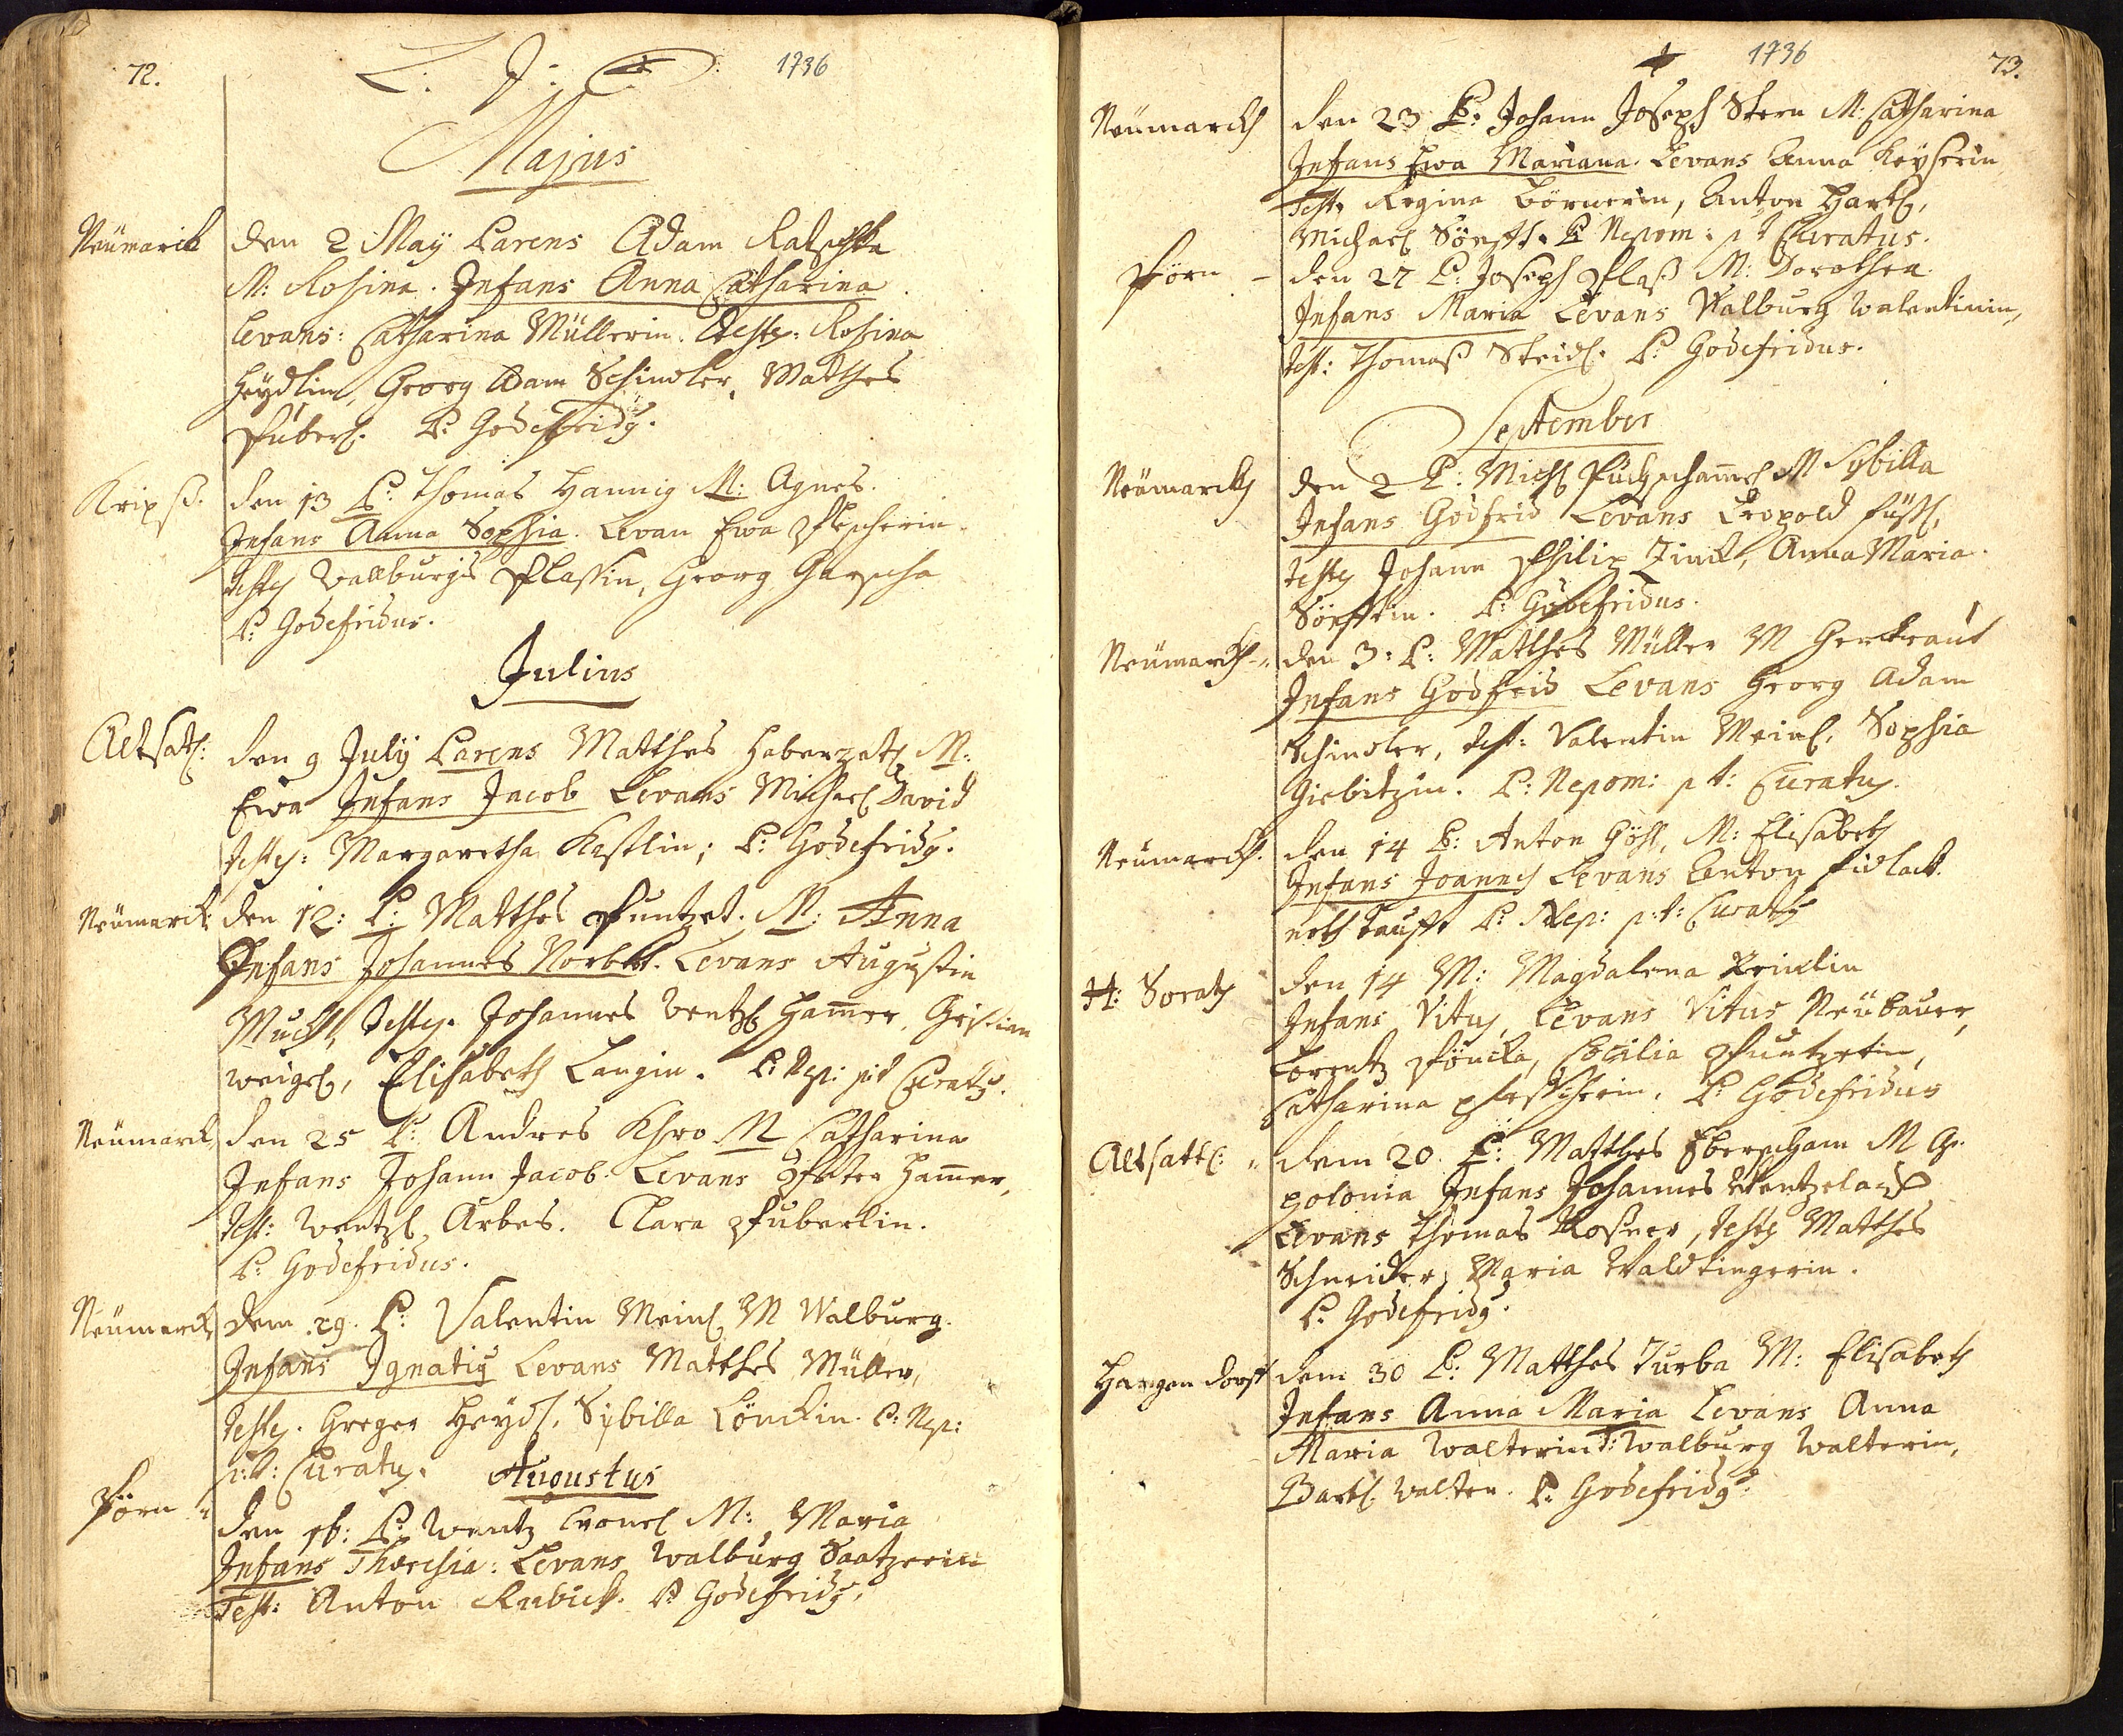 72.
L. J. C. 1736
Majus
Neümarck den 2 May Parens Adam Ratschka
M: Rosina. Infans Anna Catharina
Levans: Catharina Müllerin. Testes: Rosina
Heydlin, Georg Adam Schindler, Matthes
Puberl. P: Godefridg.
Kripß. den 13 P: Thomas Hannig M: Agnes.
Infans Anna Sophia. Levan Ewa
testes Wallburgis Plassin, Georg Garscha
P: Godefridus.
Julius
Altsatl: den 9 July Parens Matthes Haberzatl M:
Ewa Infans Jacob Levans Michael David
testes: Margaretha Kestlin; P: Godefridg.
Neümarck den 12: P: Matthes Puntzet. M: Anna
Infans Johannes Norbert. Levans Augustin
Muckl, Testes. Johannes Wentzl Ham̄er, Christian
Weigel, Elisabeth Langin. P: Nep: p:t Curatg.
Neümarck den 25 P: Andres Khro M Catharina
Infans Johann Jacob. Levans Peter Ham̄er,
Test: Wentzl Arbes. Clara Puberlin.
P: Godefridus.
Neümarck dem .29. P: Valentin Meinl M Walburg.
Infans Ignatig Levans Matthes Müller,
Testes. Greger Heydl, Sybilla Lönckin. P: Nep:
p:t: Curatg. Augustus
Pörn den 16: P: Wentz M: Maria
Infans Theresia: Levans Walburg Saatzerin
Test: Anton Rubick. P Godefridg.
1736 73.
Neümarckh den 23 P: Johann Joseph Stern M: Catharina
Infans Ewa Mariana. Levans Anna Keyserin
Test. Regina Börnerin, Anton Hartl,
Michael Sönfft. P Nepom: p t Curatus.
Pörn - den 27 P: Joseph Plaß M: Dorothea
Infans Maria Levans Walburg Walentinin,
test: Thomaß Steidl. P: Godefridus.
September
Neümarckh den 2 P: Michl M Sybilla
Infans Godfrid Levans Leopold Füßl,
testes Johann Philip Zinck, Anna Maria
Sönfftin. P: Godefridus.
Neümarckh den 3: P: Matthes Müller M Gertraut
Infans Godfrid Levans Georg Adam
Schindler, test: Valentin Meinl, Sophia
Giebitzin. P: Nepom: p t: Curatg.
Neümarckh. den 14 P: Anton Göhl, M: Elisabeth
Infans Joannes Levans Anton Fidlack.
noth taufft P: Nep: p:t: Curatg
H: Soratz den 14 M: Magdalena
Infans Vitus, Levans Vitus Neübauer,
Lorentz Pöncka, Cocilia Puntzetin,
Catharina P: Godefridus
Altsattl: dem 20 P: Matthes Eberscham M Ap-
polonia Infans Johannes Wentzelaus
Levans Thomas Rosner, testes Matthes
Schneider, Maria Waldtingerin.
P: Godefridg.
Hangendorff dem 30 P: Matthes Turba M: Elisabeth
Infans Anna Maria Levans Anna
Maria Walterin T: Walburg Walterin,
Bartl Walter. P: Godefridg.